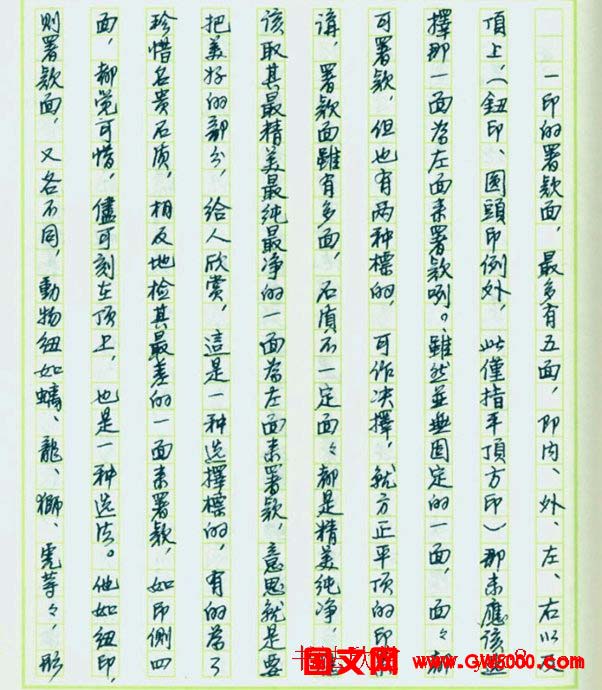 一印的署款面，最多有五面，即内、外、左、右以及
頂上，（鈕印、圓頭印例外，此僅指平頂方印）那末應該选
擇那一面為左面来署款咧。雖然並無固定的一面，面々都
可署款，但也有两种標的，可作决擇，就方正平頂的印
講，署款面雖有多面，石質不一定面々都是精美纯净，
该取其最精美最纯最净的一面為左面来署款，意思就是要
把美好的部分，给人欣赏，這是一种选擇標的，有的為了
珍惜名贵石质，相反地检其最差的一面来署款，如印侧四
面，都觉可惜，儘可刻在顶上，也是一种选法。他如纽印，
则署款面，又各不同，動物纽如螭、龍、獅、虎等々，形
国文网
www.GW5000.com